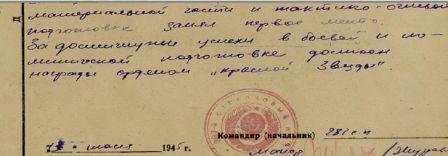 материальной части и тактико-огневой
подготовке занял первое место.
За достигнутые успехи в боевой и по-
литической подготовке достоин
награды орденом „Красной Звезды".
Командир (начальник)
июля 1945 г.
Майор